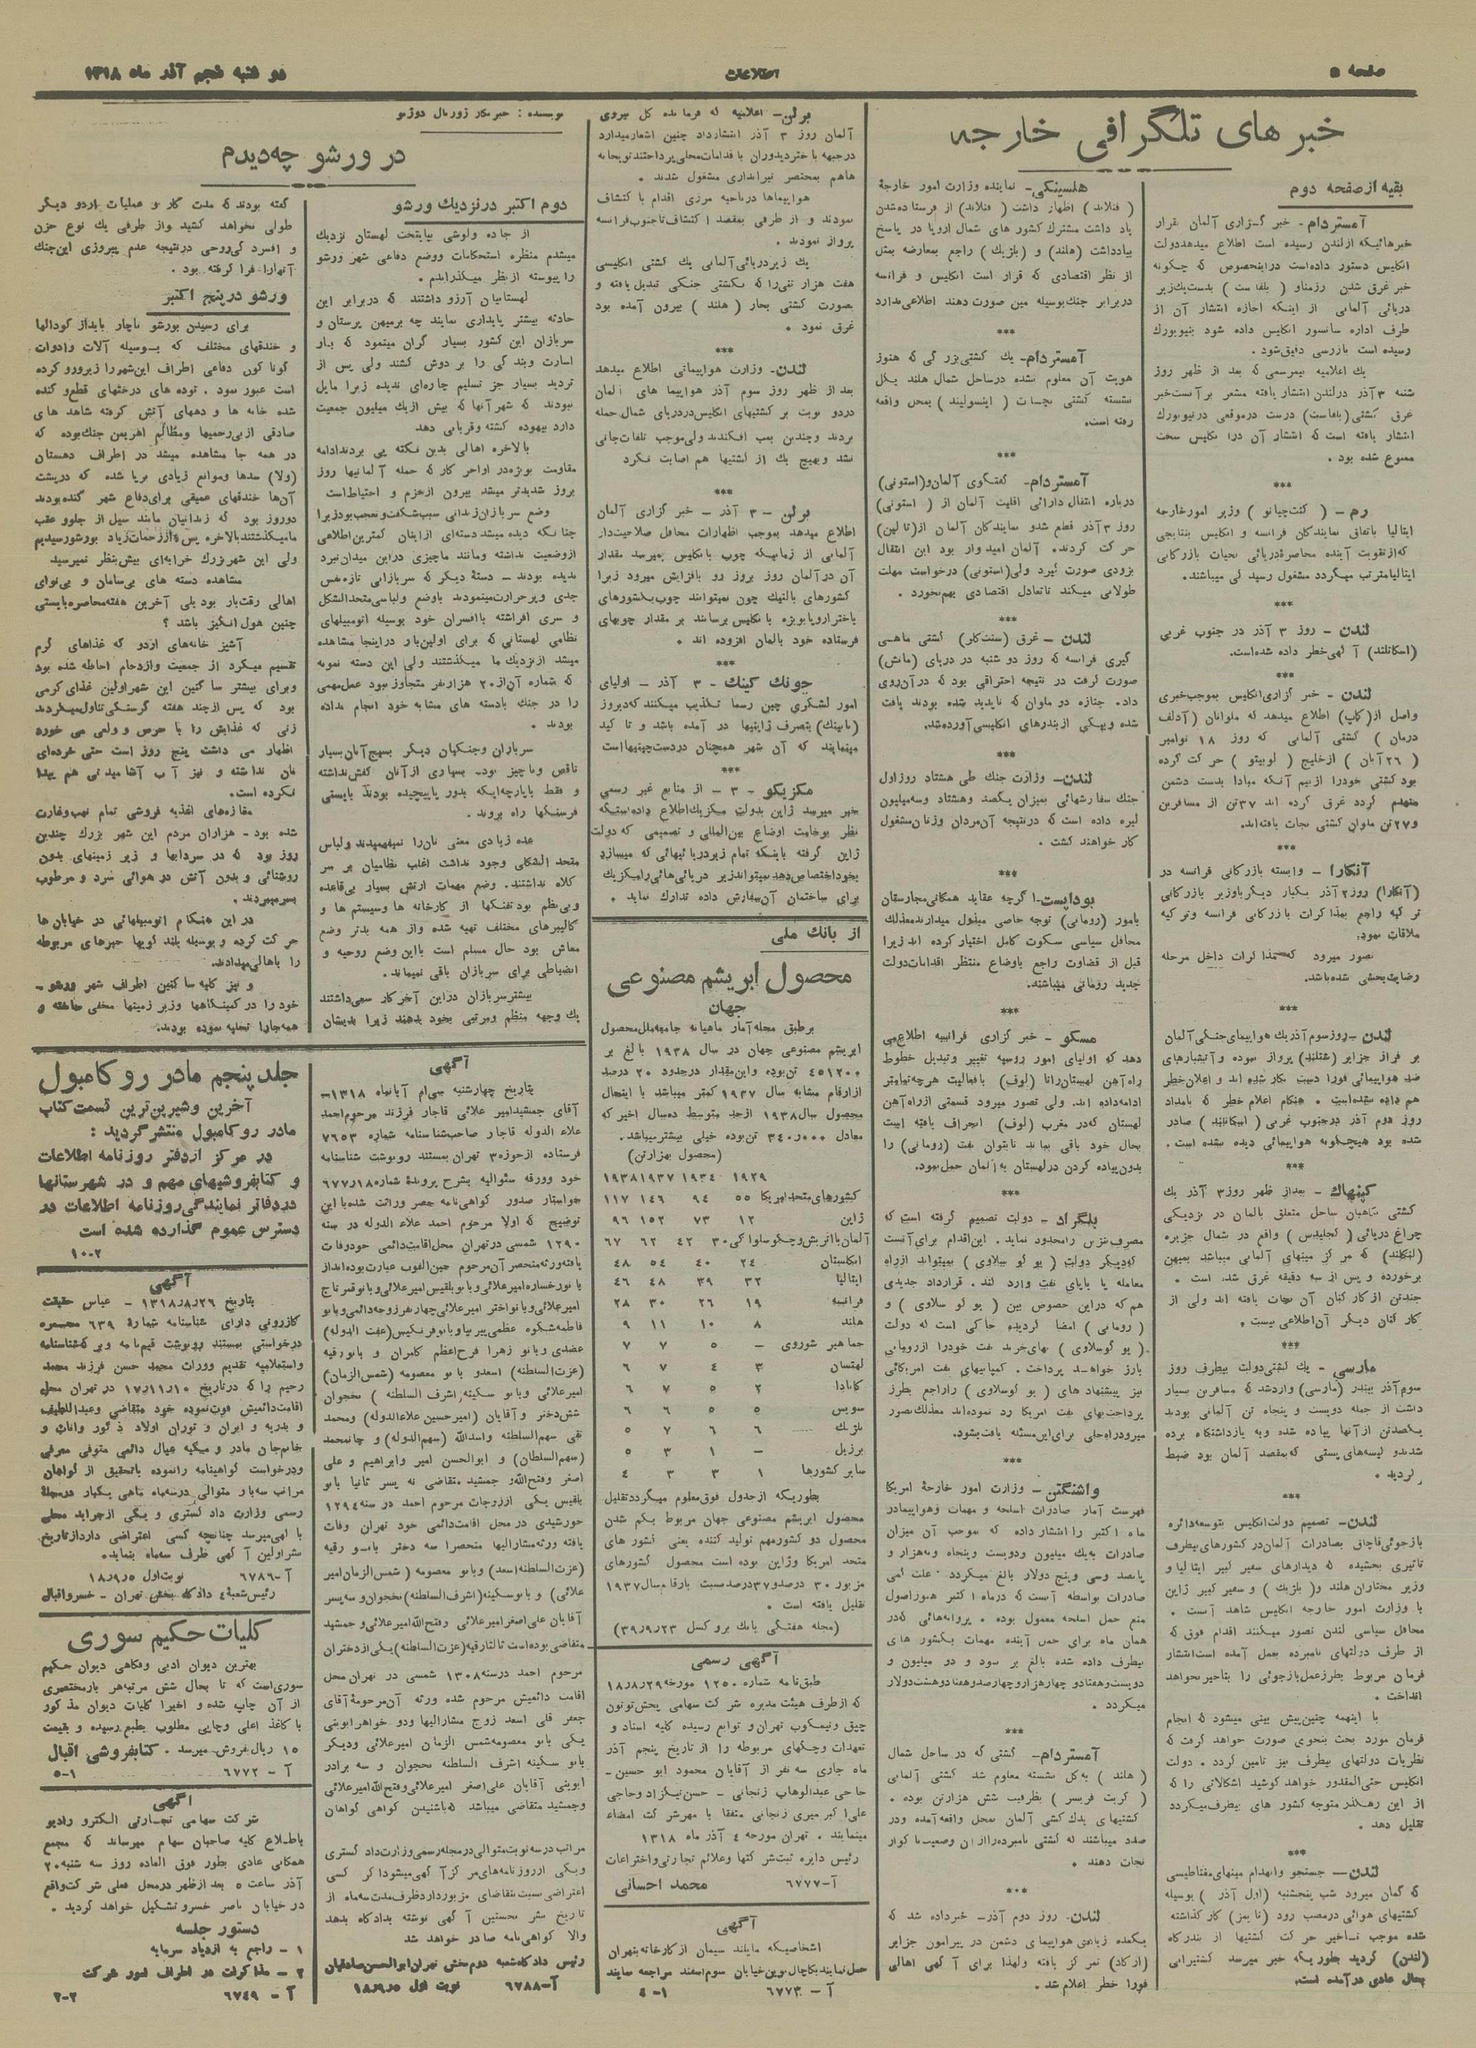 صفحه ۵
اطلاعات
دو شنبه پنجم آذر ماه ۱۳۱۸
خبر های تلگرافی خارجه
بقیه از صفحه دوم
آمستردام- خبر گزاری آلمان قرار
خبرهائیکه از لندن رسیده است اطلاع میدهد دولت
انگلیس دستور داده است در اینخصوص که چگونه
خبر غرق شدن رزمناو ( بلفاست ) بدست یک زیر
دریائی آلمانی از اینکه اجازه انتشار آن از
طرف اداره سانسور انگلیس داده شود بنیویورک
رسیده است بازرسی دقیق شود.
یک اعلامیه غیررسمی که بعد از ظهر روز
شنبه ۳ آذر در لندن انتشار یافته مشعر بر آنست خبر
غرق کشتی (بلفاست) درست در موقعی در نیویورک
انتشار یافته است که انتشار آن در انگلیس سخت
ممنوع شده بود .
***
رم - ( کنت چیانو ) وزیر امور خارجه
ایتالیا باتفاق نمایندگان فرانسه و انگلیس بنتایجی
که از تقویت آینده محاصره دریائی بحیات بازرگانی
ایتالیا مترتب میگردد مشغول رسیدگی میباشند.
***
لندن - روز ۳ آذر در جنوب غربی
(اسکاتلند) آگهی خطر داده شده است.
***
لندن - خبر گزاری انگلیس بموجب خبری
واصل از (کاپ) اطلاع میدهد که ملوانان (آدلف
ورمان ) کشتی آلمانی که روز ۱۸ نوامبر
( ۲۶ آبان ) از خلیج ( لوبیتو ) حرکت کرده
بود کشتی خود را از بیم آنکه مبادا بدست دشمن
منهدم گردد غرق کرده اند ۳۷ تن از مسافرین
و ۲۷ تن ملوان کشتی نجات یافته اند.
***
آنکارا - وابسته بازرگانی فرانسه در
(آنکارا) روز ۲ آذر یکبار دیگر با وزیر بازرگانی
ترکیه راجع بمذاکرات بازرگانی فرانسه و ترکیه
ملاقات نمود.
تصور میرود که مذاکرات داخل مرحله
رضایت بخشی شده باشد.
***
لندن - روز سوم آذر یک هواپیمای جنگی آلمان
بر فراز جزایر (شتلند) پرواز نموده و آتشبارهای
ضد هواپیمائی فورا دست بکار شده اند و اعلان خطر
هم داده شده است . هنگام اعلام خطر که بامداد
روز دوم آذر در جنوب غربی (اسکاتلند) صادر
شده بود هیچگونه هواپیمائی دیده نشده است.
***
کپنهاک - بعد از ظهر روز ۳ آذر یک
کشتی نگاهبان ساحل متعلق بآلمان در نزدیکی
چراغ دریائی ( لجلیدس ) واقع در شمال جزیره
(لنگلند) که مرکز مینهای آلمانی میباشد بمین
برخورده و پس از سه دقیقه غرق شد. است .
چند تن از کارکنان آن نجات یافته اند ولی از
کارکنان دیگر آن اطلاعی نیست .
***
مارسی - یک کشتی دولت بیطرف روز
سوم آذر ببندر (مارسی) وارد شد که مسافرین بسیار
داشت از جمله دویست و پنجاه تن آلمانی بودند
یکصد تن از آنها پیاده شده و به بازداشتگاه برده
شدند و کیسه های پستی که بمقصد آلمان بود ضبط
گردید .
***
لندن- تصمیم دولت انگلیس بتوسعه دائره
بازجوئی قاچاق بصادرات آلمان در کشورهای بیطرف
تاثیری بخشیده که دیدارهای سفیر کبیر ایتالیا و
وزیر مختاران هلند و ( بلژیک ) و سفیر کبیر ژاپن
با وزارت امور خارجه انگلیس شاهد آنست .
محافل سیاسی لندن تصور میکنند اقدام فوق که
از طرف دولتهای نامبرده بعمل آمده است انتشار
فرمان مربوط بطرز عمل بازجوئی را بتاخیر نخواهد
انداخت .
با اینهمه چنین پیش بینی میشود که انجام
فرمان مورد بحث بنحوی صورت خواهد گرفت که
نظریات دولتهای بیطرف نیز تامین گردد . دولت
انگلیس حتی المقدور خواهد کوشید اشکالاتی را که
از این رهگذر متوجه کشور های بیطرف میگردد
تقلیل دهد .
***
لندن- جستجو و انهدام مینهای مغناطیسی
که گمان میرود شب پنجشنبه (اول آذر ) بوسیله
کشتیهای هوائی در مصب رود (تایمز) کار گذاشته
شده موجب تاخیر حرکت کشتیها از بندرگاه
(لندن) گردید بطوریکه خبر میرسد کشتیرانی
بحال عادی در آمده است.
هلسینکی- نماینده وزارت امور خارجه
( فنلاند ) اظهار داشت ( فنلاند) از فرستاده شدن
یاد داشت مشترک کشور های شمال اروپا در پاسخ
بیادداشت (هلند) و (بلژیک ) راجع بمعارضه بمثل
از نظر اقتصادی که قرار است انگلیس و فرانسه
در برابر جنک بوسیله مین صورت دهند اطلاعی ندارد
***
آمستردام- یک کشتی بزرگی که هنوز
هویت آن معلوم نشده در ساحل شمال هلند بگل
نشسته کشتی نجات ( اینسولیند ) بمحل واقعه
رفته است.
***
آمستردام- گفتگوی آلمان و (استونی)
درباره انتقال دارائی اقلیت آلمان از ( استونی )
روز ۳ آذر قطع شد و نمایندگان آلمان از (تالین)
حرکت کردند. آلمان امیدوار بود این انتقال
بزودی صورت گیرد ولی (استونی) درخواست مهلت
طولانی میکند تا تعادل اقتصادی بهم نخورد .
***
لندن - غرق (سنت کار) کشتی ماهی
گیری فرانسه که روز دو شنبه در دریای (مانش)
صورت گرفت در نتیجه احتراقی بود که در آن روی
داد. جنازه دو ملوان که ناپدید شده بودند یافت
شده و بیکی از بندرهای انگلیسی آورده شد.
***
لندن- وزارت جنک طی هشتاد روز اول
جنک سفارشهائی بمیزان یکصد و هشتاد و سه میلیون
لیره داده است که در نتیجه آن مردان و زنان مشغول
کار خواهند گشت .
***
بوداپست- اگرچه عقاید همگانی مجارستان
بامور (رومانی) توجه خاصی مبذول میدارند معذلک
محافل سیاسی سکوت کامل اختیار کرده اند زیرا
قبل از قضاوت راجع باوضاع منتظر اقدامات دولت
جدید رومانی میباشند.
***
مسکو - خبر گزاری فرانسه اطلاع می
دهد که اولیای امور روسیه تغییر و تبدیل خطوط
راه آهن لهستان را تا (لوف) با فعالیت هرچه تمامتر
ادامه داده اند. ولی تصور میرود قسمتی از راه آهن
لهستان که در مغرب (لوف) انحراف یافته است
بحال خود باقی بماند تا بتوان نفت (رومانی) را
بدون پیاده کردن در لهستان به آلمان حمل نمود.
***
بلگراد - دولت تصمیم گرفته است که
مصرف بنزین را محدود نماید. این اقدام برای آنست
که دیگر دولت (یو گو سلاوی ) نمیتواند از راه
معامله پایاپای نفت وارد کند. قرارداد جدیدی
هم که در این خصوص بین ( یو گو سلاوی ) و
( رومانی ) امضا گردیده حاکی است که دولت
( یو گوسلاوی ) بهای خرید نفت خود را از رومانی
بارز خواهد پرداخت . کمپانیهای نفت امریکائی
نیز پیشنهاد های ( یو گوسلاوی ) را راجع بطرز
پرداخت بهای نفت امریکا رد نموده اند معذلک تصور
میرود راه حلی برای این مسئله یافت بشود.
***
واشنگتن - وزارت امور خارجه امریکا
فهرست آمار صادرات اسلحه و مهمات و هواپیما در
ماه اکتبر را انتشار داده که بموجب آن میزان
صادرات به یک میلیون و دویست و پنجاه و نه هزار و
پانصد و سی و پنج دولار بالغ میگردد . علت کمی
صادرات بواسطه آنست که در ماه اکتبر هنوز اصول
منع حمل اسلحه معمول بوده . پروانه هائی که در
همان ماه برای حمل آینده مهمات بکشور های
بیطرف داده شده بالغ بر سود و دو میلیون و
دویست و هفتاد و چهار هزار و چهارصد و هفتاد و هشت دولار
میگردد .
***
آمستردام - کشتی که در ساحل شمال
( هلند ) به گل نشسته معلوم شد کشتی آلمانی
( گریت فریسر ) بظرفیت شش هزار تن بوده .
کشتیهای یدک کشی آلمان بمحل واقعه آمده و در
صدد میباشند که کشتی نامبرده را از این وضعیت ناگوار
نجات دهند .
***
لندن. روز دوم آذر- خبر داده شد که
یکعده زیادی هواپیمای دشمن در پیرامون جزایر
(ارکاد) تمرکز یافته و لهذا برای آگهی اهالی
فورا خطر اعلام شد .
برلن- اعلامیه که فرمانده کل نیروی
آلمان روز ۳ آذر انتشار داد چنین اشعار میدارد
در جبهه باختر دیدوران باقدامات محلی پرداختند توپخانه
هاهم بمختصر تیراندازی مشغول شدند .
هواپیماها در ناحیه مرزی اقدام باکتشاف
نمودند و از طرفی بمقصد اکتشاف تا جنوب فرانسه
پرواز نمودند .
یک زیردریائی آلمانی یک کشتی انگلیسی
هفت هزار تنی را که بکشتی جنگی تبدیل یافته و
بصورت کشتی بخار ( هلند ) بیرون آمده بود
غرق نمود .
***
لندن- وزارت هواپیمائی اطلاع میدهد
بعد از ظهر روز سوم آذر هواپیما های آلمان
در دو نوبت بر کشتیهای انگلیس در دریای شمال حمله
بردند و چندین بمب افکندند ولی موجب تلفات جانی
نشد و بهیچ یک از کشتیها هم اصابت نکرد
***
برلن - ۳ آذر - خبر گزاری آلمان
اطلاع میدهد بموجب اظهارات محافل صلاحیت دار
آلمانی از زمانیکه چوب بانگلیس نمیرسد مقدار
آن در آلمان روز بروز رو بافزایش میرود زیرا
کشورهای بالتیک چون نمیتوانند چوب بکشورهای
باختر اروپا بویژه بانگلیس برسانند بر مقدار چوبهای
فرستاده خود بآلمان افزوده اند .
***
چونک کینک - ۳ آذر - اولیای
امور لشگری چین رسما تکذیب میکنند که دیروز
(نانینک) بتصرف ژاپنیها در آمده باشد و تاکید
مینمایند که آن شهر همچنان در دست چینیها است
***
مکزیکو - ۳ - از منابع غیر رسمی
خبر میرسد ژاپن بدولت مکزیک اطلاع داده است که
نظر بوخامت اوضاع بین المللی و تصمیمی که دولت
ژاپن گرفته باینکه تمام زیردریائیهائی که میسازد
بخود اختصاص دهد نمیتواند زیر دریائی هائی را مکزیک
برای ساختمان آن سفارش داده تدارک نماید .
از بانک ملی
محصول ابریشم مصنوعی
جهان
برطبق مجله آمار ماهیانه جامعه ملل محصول
ابریشم مصنوعی جهان در سال ۱۹۳۸ بالغ بر
۴۵۱۲۰۰ تن بوده و این مقدار در حدود ۲۰ درصد
از ارقام مشابه سال ۱۹۳۷ کمتر میباشد با اینحال
محصول سال ۱۹۳۸ از حد متوسط ده سال اخیر که
معادل ۳۴۰٫۰۰۰ تن بوده خیلی بیشتر میباشد.
(محصول بهزار تن)
۱۹۲۹ ۱۹۳۴ ۱۹۳۷ ۱۹۳۸
کشورهای متحد امریکا ۵۵ ۹۴ ۱۴۶ ۱۱۷
ژاپن ۱۲ ۷۳ ۱۵۲ ۹۶
آلمان با اتریش و چکوسلواکی ۳۰ ۴۲ ۶۲ ۶۷
انگلستان ۲۴ ۴۰ ۵۴ ۴۸
ایتالیا ۳۲ ۳۹ ۴۸ ۴۶
فرانسه ۱۹ ۲۶ ۳۰ ۲۸
هلند ۸ ۱۰ ۱۱ ۹
جماهیر شوروی - ۵ ۷ ۷
لهستان ۳ ۴ ۷ ۶
کانادا ۲ ۵ ۷ ۶
سویس ۵ ۵ ۶ ۶
بلژیک ۶ ۶ ۷ ۵
برزیل - ۱ ۳ ۵
سایر کشورها ۱ ۳ ۳ ۴
بطوریکه از جدول فوق معلوم میگردد تقلیل
محصول ابریشم مصنوعی جهان مربوط بکم شدن
محصول دو کشور مهم تولید کننده یعنی کشور های
متحد امریکا و ژاپن بوده است محصول کشورهای
مزبور ۳۰ درصد و ۳۷ درصد نسبت بارقام سال ۱۹۳۷
تقلیل یافته است .
(مجله هفتگی بانک بروکسل ۳۹٫۹٫۲۳)
آگهی رسمی
طبق نامه شماره ۱۲۵۰ مورخه ۱۸٫۸٫۲۹
که از طرف هیئت مدیره شرکت سهامی پخش توتون
چپق و تنباکوب تهران و توابع رسیده کلیه اسناد و
تعهدات و چکهای مربوطه را از تاریخ پنجم آذر
ماه جاری سه نفر از آقایان محمود ابو حسین-
حاجی عبدالوهاب زنجانی - حسن نیکزاد و حاجی
علی اکبر میری زنجانی متفقا با مهر شرکت امضاء
مینمایند . تهران مورخه ۴ آذر ماه ۱۳۱۸
رئیس دایره ثبت شرکتها و علائم تجارتی و اختراعات
آ-۶۷۷۷ محمد احسانی
آگهی
اشخاصیکه مایلند سیمان از کارخانه بتهران
حمل نمایند بکاچال نوین خیابان سوم اسفند مراجعه نمایند
آ - ۶۷۷۳ ۱-۴
نویسنده : خبرنگار ژورنال دوژنو
در ورشو چه دیدم
دوم اکتبر در نزدیک ورشو
از جاده ولوشی بپایتخت لهستان نزدیک
میشدم منظره استحکامات و وضع دفاعی شهر ورشو
را پیوسته از نظر میگذرانیدم .
لهستانیان آرزو داشتند که در برابر این
حادثه بیشتر پایداری نمایند چه بر میهن پرستان و
سربازان این کشور بسیار گران مینمود که بار
اسارت و بندگی را بر دوش کشند ولی پس از
تردید بسیار جز تسلیم چاره ای ندیده زیرا مایل
نبودند که شهر آنها که بیش از یک میلیون جمعیت
دارد بیهوده کشته و قربانی دهد
بالاخره اهالی بدین نکته پی بردند ادامه
مقاومت بویژه در اواخر کار که حمله آلمانیها روز
بروز شدیدتر میشد بیرون از حزم و احتیاط است
وضع سربازان زندانی سبب شگفت و تعجب بود زیرا
چنانکه دیده میشد دسته ای از اینان کمترین اطلاعی
از وضعیت نداشته و مانند ما چیزی در این میدان نبرد
ندیده بودند - دسته دیگر که سربازانی تازه نفس
جدی و پرحرارت مینمودند با وضع و لباسی متحدالشکل
و سری افراشته با افسران خود بوسیله اتومبیلهای
نظامی لهستانی که برای اولین بار در اینجا مشاهده
میشد از نزدیک ما میگذشتند ولی این دسته نمونه
که شماره آن از ۲۰ هزار نفر متجاوز نبود عمل مهمی
را در جنک با دسته های مشابه خود انجام نداده
بودند .
سربازان و جنگیان دیگر بسیج آنان بسیار
ناقص و ناچیز بود. بسیاری از آنان کفش نداشته
و فقط با پارچه ایکه بدور پا پیچیده بودند بایستی
فرسنگها راه بروند .
عده زیادی معنی نان را نمیفهمیدند و لباس
متحد الشکلی وجود نداشت اغلب نظامیان بر سر
کلاه نداشتند. وضع مهمات ارتش بسیار بی قاعده
و بی نظم بود تفنگها از کارخانه ها و سیستم ها و
کالیبرهای مختلف تهیه شده و از همه بدتر وضع
معاش بود حال مسلم است با این وضع روحیه و
انضباطی برای سربازان باقی نمیماند.
بیشتر سربازان در این آخر کار سعی داشتند
یک وجهه منظم و مرتبی بخود بدهند زیرا بدیشان
گفته بودند که مدت کار و عملیات اردو دیگر
طولی نخواهد کشید و از طرفی یک نوع حزن
و افسردگی روحی در نتیجه عدم پیروزی این جنک
آنها را فرا گرفته بود .
ورشو در پنج اکتبر
برای رسیدن بورشو ناچار باید از گودالها
و خندقهای مختلف که بوسیله آلات و ادوات
گوناگون دفاعی اطراف این شهر را زیر و رو کرده
است عبور نمود . توده های درختهای قطع و کنده
شده خانه ها و دههای آتش گرفته شاهد های
صادقی از بی رحمیها و مظالم اهریمن جنک بوده که
در همه جا مشاهده میشد در اطراف دهستان
(ولا) سدها و موانع زیادی برپا شده که در پشت
آن ها خندقهای عمیقی برای دفاع شهر کنده بودند
دو روز بود که زندانیان مانند سیل از جلو و عقب
ما میگذشتند بالاخره پس از زحمات زیاد بورشو رسیدیم
ولی این شهر بزرک خرابه ای بیش بنظر نمیرسید
مشاهده دسته های بی سامان و بی نوای
اهالی رقت بار بود بلی آخرین هفته محاصره بایستی
چنین هول انگیز باشد ؟
آشپز خانه های اردو که غذاهای گرم
تقسیم میکرد از جمعیت و ازدحام احاطه شده بود
و برای بیشتر ساکنین این شهر اولین غذای گرمی
بود که پس از چند هفته گرسنگی تناول میکردند
زنی که غذایش را با حرص و ولعی می خورد
اظهار می داشت پنج روز است حتی خرده ای
نان نداشته و نیز آب آشامیدنی هم پیدا
نکرده است.
مغازه های اغذیه فروشی تمام نهب و غارت
شده بود - هزاران مردم این شهر بزرک چندین
روز بود که در سردابها و زیر زمینهای بدون
روشنائی و بدون آتش در هوائی سرد و مرطوب
بسر میبردند .
در این هنگام اتومبیلهائی در خیابان ها
حرکت کرده و بوسیله بلندگویها خبرهای مربوطه
را باهالی میدادند.
و نیز کلیه ساکنین اطراف شهر ورشو -
خود را در کمینگاهها و زیر زمینها مخفی ساخته و
همه جا را تخلیه نموده بودند.
آگهی
بتاریخ چهارشنبه سی ام آبانماه ۱۳۱۸-
آقای جمشید امیر علائی قاجار فرزند مرحوم احمد
علاء الدوله قاجار صاحب شناسنامه شماره ۷۶۵۳
فرستاده از حوزه ۳ تهران بمستند رونوشت شناسنامه
خود و ورقه سئوالیه بشرح پرونده شماره ۶۷۷٫۱۸
خواستار صدور گواهی نامه حصر وراثت شده با این
توضیح که اولا مرحوم احمد علاء الدوله در سنه
۱۲۹۰ شمسی در تهران محل اقامت دائمی خود وفات
یافته ورثه منحصر آن مرحوم حین الفوت عبارت بوده اند از
بانو رخساره امیر علائی و بانو بلقیس امیر علائی و بانو قمر تاج
امیر علائی و بانو اختر امیر علائی چهار زوجه دائمی و بانو
فاطمه شکوه عظمی پیرنیا و بانو فرنگیس (عفت الدوله)
عضدی و بانو زهرا فرح اعظم کامران و بانو رقیه
(عزت السلطنه) اسعد و بانو معصومه (شمس الزمان)
امیر علائی و بانو سکینه (اشرف السلطنه ) نخجوان
شش دختر و آقایان (امیر حسین علاء الدوله) و محمد
تقی سهم السلطنه و اسدالله (سهم الدوله) و جان محمد
(سهم السلطان) و ابوالحسن امیر و ابراهیم و علی
اصغر و فتح الله و جمشید متقاضی نه پسر ثانیا بانو
بلقیس یکی از زوجات مرحوم احمد در سنه ۱۲۹۴
خورشیدی در محل اقامت دائمی خود تهران وفات
یافته ورثه مشارالیها منحصرا سه دختر بانو رقیه
(عزت السلطنه اسعد) و بانو معصومه (شمس الزمان امیر
علائی) و بانو سکینه (اشرف السلطنه) نخجوان و سه پسر
آقایان علی اصغر امیر علائی و فتح الله امیر علائی و جمشید
متقاضی بوده است ثالثا رقیه (عزت السلطنه) یکی از دختران
مرحوم احمد در سنه ۱۳۰۸ شمسی در تهران محل
اقامت دائمیش مرحوم شده ورثه آن مرحومه آقای
جعفر قلی اسعد زوج مشارالیها و دو خواهر ابوینی
یکی بانو معصومه شمس الزمان امیر علائی و دیگر
بانو سکینه اشرف السلطنه نخجوان و سه برادر
ابوینی آقایان علی اصغر امیر علائی و فتح الله امیر علائی
و جمشید متقاضی میباشد که باشنیدن گواهی گواهان
مراتب در سه نوبت متوالی در مجله رسمی وزارت دادگستری
و یکی از روزنامه های مرکز آگهی میشود اگر کسی
اعتراضی نسبت بتقاضای مزبور دارد ظرف مدت سه ماه از
تاریخ نشر نخستین آگهی نوشته بدادگاه بدهد
والا گواهی نامه صادر خواهد شد
رئیس دادگاه شعبه دوم بخش تهران ابوالحسن صادقیان
آ-۶۷۸۸ نوبت اول ۱۸٫۹٫۵
جلد پنجم مادر روکامبول
آخرین و شیرین ترین قسمت کتاب
مادر روکامبول منتشر گردید :
در مرکز از دفتر روزنامه اطلاعات
و کتابفروشیهای مهم و در شهرستانها
در دفاتر نمایندگی روزنامه اطلاعات در
دسترس عموم گذارده شده است
۲-۱۰
آگهی
بتاریخ ۱۳۱۸٫۸٫۲۶ - عباس حقیقت
کازرونی دارای شناسنامه شماره ۶۳۹
درخواستی بمستند رونوشت قیم نامه و برگ شناسنامه
و استعلامیه تقدیم و وراث محمد حسن فرزند محمد
رحیم را که در تاریخ ۱۷٫۱۱٫۱۰ در تهران محل
اقامت دائمیش فوت نموده خود متقاضی و عبداللطیف
و بدریه و ایران و توران اولاد ذکور و اناث و
خانم جان مادر و ملیکه عیال دائمی متوفی معرفی
و درخواست گواهینامه را نموده با تحقیق از گواهان
مراتب سه بار متوالی در سه ماه ماهی یکبار در مجله
رسمی وزارت دادگستری و یکی از جراید محلی
آگهی میرسد چنانچه کسی اعتراضی دارد از تاریخ
نشر اولین آگهی ظرف سه ماه بنماید.
آ-۶۷۸۶ نوبت اول ۱۸٫۹٫۵
رئیس شعبه ۴ دادگاه بخش تهران - خسرو اقبال
کلیات حکیم سوری
بهترین دیوان ادبی و فکاهی دیوان حکیم
سوری است که تا بحال شش مرتبه هر بار مختصری
از آن چاپ شده و اخیرا کلیات دیوان مذکور
با کاغذ اعلی و چاپی مطلوب بطبع رسیده و بقیمت
۱۵ ریال فروش میرسد . کتابفروشی اقبال
آ - ۶۷۷۲ ۱-۵
آگهی
شرکت سهامی تجارتی الکترو رادیو
باطلاع کلیه صاحبان سهام میرساند که مجمع
همگانی عادی بطور فوق العاده روز سه شنبه ۲۰
آذر ساعت ۵ بعد از ظهر در محل فعلی شرکت واقع
در خیابان ناصر خسرو تشکیل خواهد گردید .
دستور جلسه
۱ - راجع به ازدیاد سرمایه
۲ - مذاکرات در اطراف امور شرکت
آ - ۶۷۴۹ ۲-۲